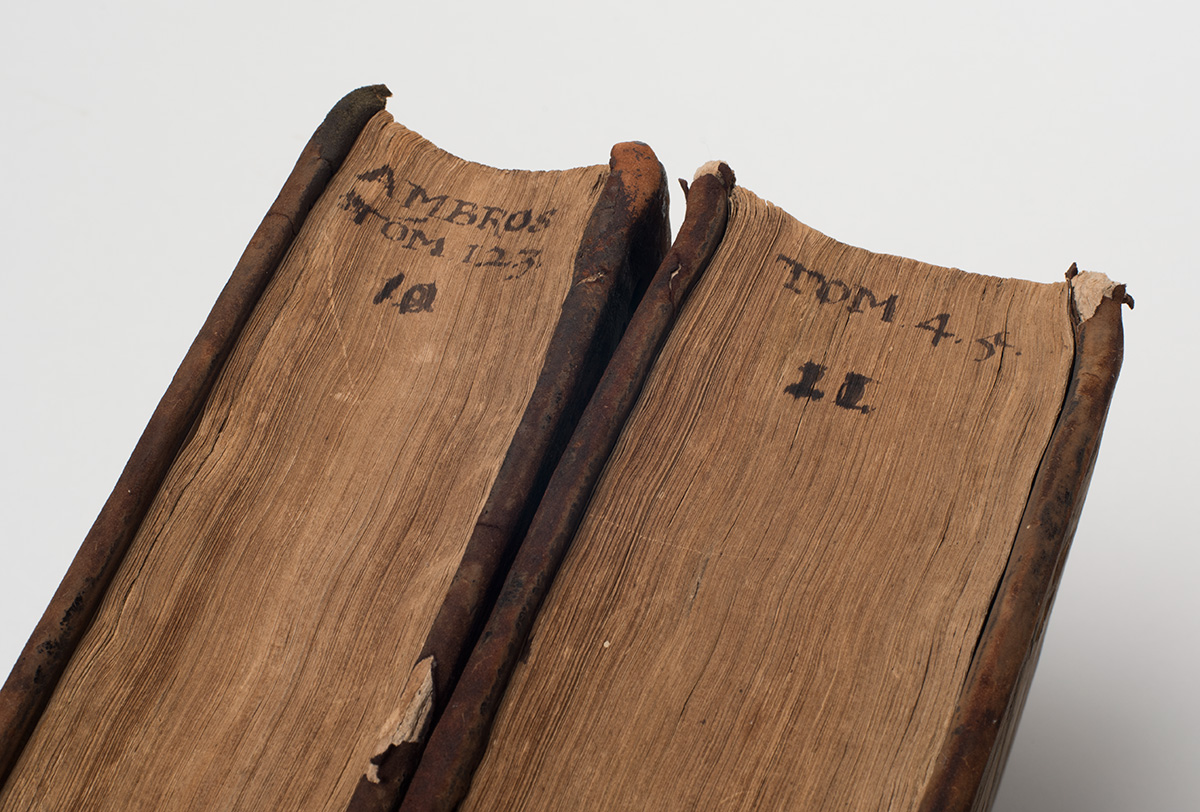 AMBROS
TOM 1.2.3.
10
TOM 4. 5t.
11